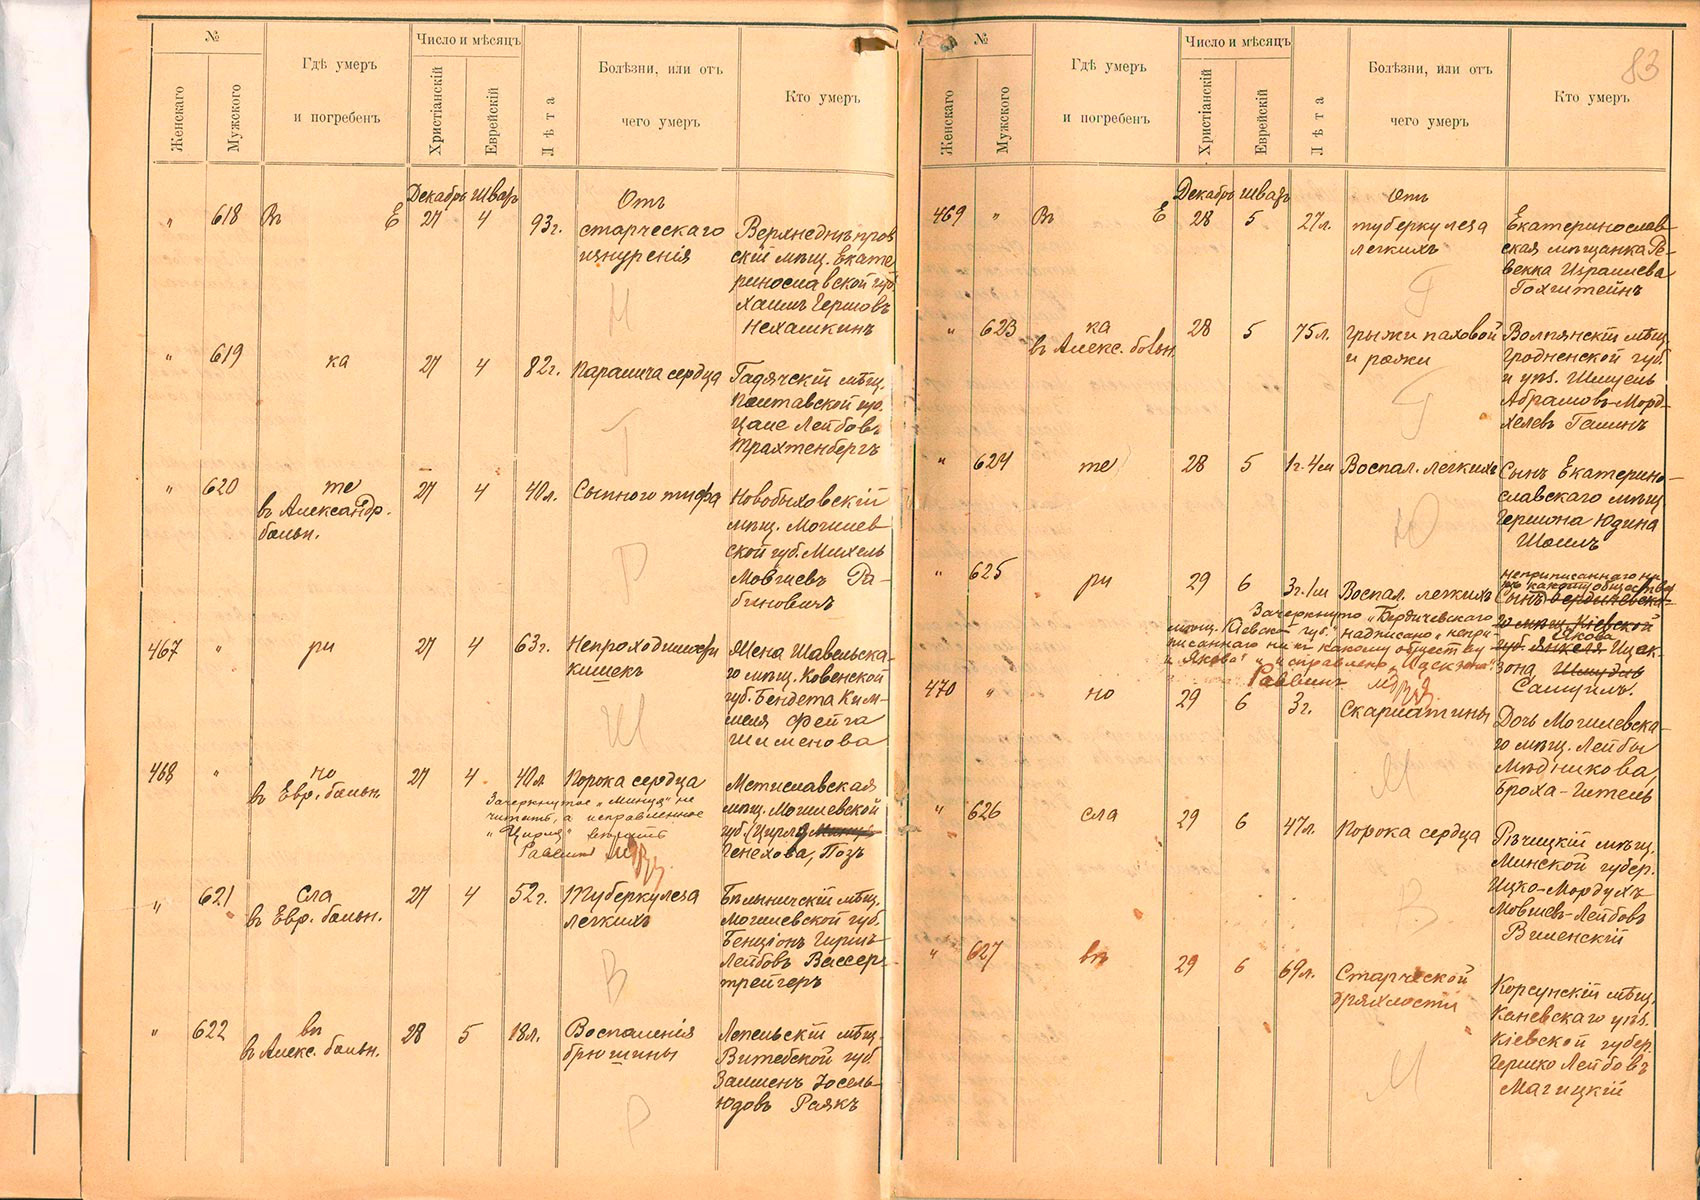 №
Женскаго
Мужского
Гдѣ умеръ
и погребенъ
Число и мѣсяцъ
Христіанскій
Еврейскій
Лѣта
Болѣзни, или отъ
чего умеръ
Кто умеръ
Декабрь Шватъ
Отъ
" 618 Въ Е 27 4 93г. старческаго
изнуренія
Верхнеднѣпров
скій мѣщ. Екате
ринославской губ.
Хаимъ Гершовъ
Нехамкинъ
" 619 ка 27 4 82г. Паралича сердца
Гадячскій мѣщ.
Полтавской губ.
Цале Лейбовъ
Трахтенбергъ
Т
" 620 те 27 4 40л. Сыпного тифа
въ Александр.
больн.
Новобыховскій
мѣщ. Могилев
ской губ. Михель
Мовшевъ Ра-
биновичъ
Р
467 " ри 27 4 63г. Непроходимости
кишекъ
Жена Шавельска-
го мѣщ. Ковенской
губ. Бендета Ким-
меля Фейга
Шименова
Ш
468 " но 27 4 40л. Порока сердца
въ Евр. больн.
Зачеркнутое "Минца" не
читать, а исправленное
"Цирля" вѣрить
Раввинъ
Мстиславская
мѣщ. Могилевской
губ. Цирля
Генехова, Позъ
" 621 сла 27 4 52г. Туберкулеза
въ Евр. больн.
легкихъ
Бѣлыничскій мѣщ.
Могилевской губ.
Бенціонъ Гиршъ-
Лейбовъ Вассер-
трейгеръ
В
" 622 въ 28 5 18л. Воспаленія
въ Алекс. больн.
брюшины
Лепельскій мѣщ.
Витебской губ.
Залменъ Іосель-
Юдовъ Раякъ
Р
83
№
Женскаго
Мужского
Гдѣ умеръ
и погребенъ
Число и мѣсяцъ
Христіанскій
Еврейскій
Лѣта
Болѣзни, или отъ
чего умеръ
Кто умеръ
Декабрь Шватъ
Отъ
469 " Въ Е 28 5 27л. туберкулеза
легкихъ
Екатеринослав-
ская мѣщанка Ре-
векка Израилева
Гохштейнъ
Г
" 623 ка 28 5 75л. Грыжи паховой
въ Алекс. больн.
и рожи
Волпянскій мѣщ.
Гродненской губ.
и уѣз. Шмуель
Абрамовъ-Морд-
хелевъ Галинъ
Г
" 624 те 28 5 1г. 4м Воспал. легкихъ
Сынъ Екатерино-
славскаго мѣщ
Гершона Юдина
Шоилъ
Ю
" 625 ри 29 6 3г. 1м Воспал. легкихъ
Неприписаннаго ни
къ какому обществу
Сынъ Бердичевска-
го мѣщ. Кіевской
Якова
губ. Янкеля Ицек-
зона Шмуель
Самуилъ.
Зачеркнуто "Бердичевскаго
мѣщ. Кіевской губ." надписано "непри-
писаннаго ни къ какому обществу
и Якова" и исправлено
Раввинъ
470 " но 29 6 3г. Скарлатины
Дочь Могилевска-
го мѣщ. Лейбы
Мѣдникова,
Броха-Гитель
М
" 626 сла 29 6 47л. Порока сердца
Рѣчицкій мѣщ.
Минской губер.
Ицко-Мордухъ
Мовшев-Лейбовъ
Виленскій
В
" 627 въ 29 6 69л. Старческой
дряхлости
Корсунскій мѣщ.
Каневскаго уѣз.
Кіевской губер.
Гершко Лейбовъ
Магицкій
М